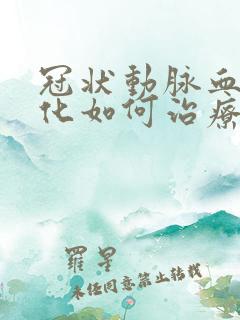 冠状動脉血
化如何治療
羅星
未经同意禁止转载